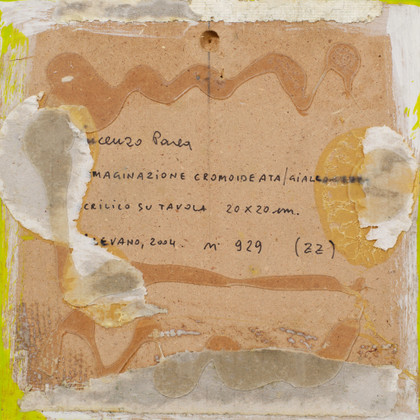 ncenzo Parea
MAGINAZIONE CROMOIDEATA/GIALL
CRILICO SU TAVOLA 20 X 20 cm.
LEVANO, 2004. N° 929 (ZZ)